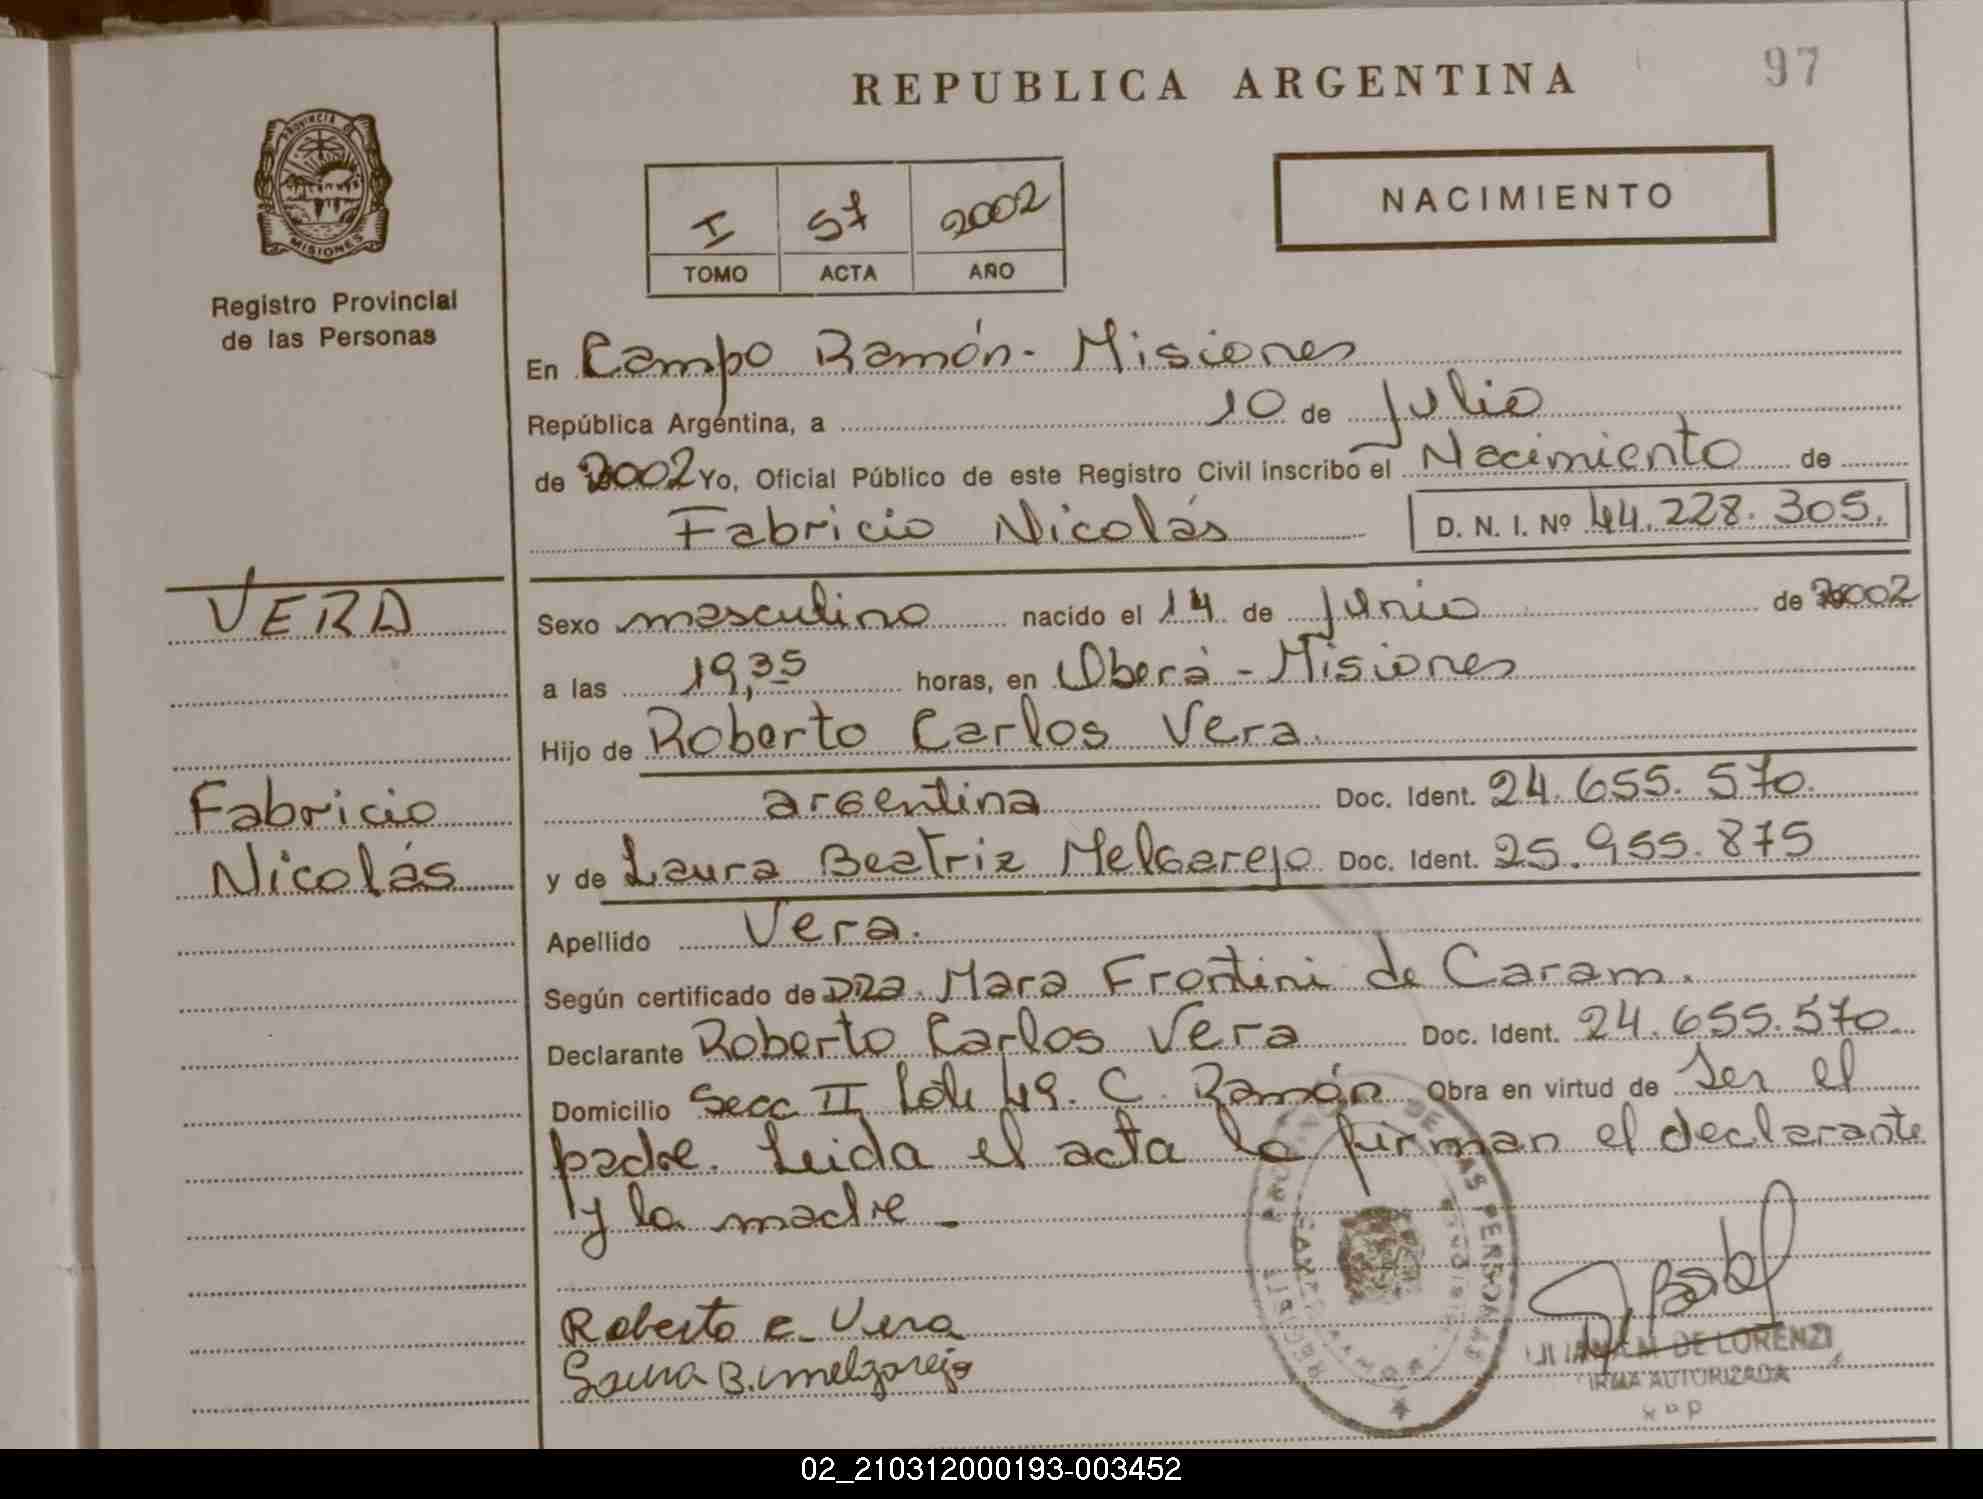 REPUBLICA ARGENTINA
97
PROVINCIA DE
MISIONES
Registro Provincial
de las Personas
I 57 2002
TOMO ACTA AÑO
NACIMIENTO
En Campo Ramón - Misiones
República Argentina, a 10 de Julio
de 2002 Yo, Oficial Público de este Registro Civil inscribo el Nacimiento de
Fabricio Nicolás D. N. I. Nº 44.228.305.
VERA
Fabricio
Nicolás
Sexo masculino nacido el 14 de Junio de 2002
a las 19,35 horas, en Oberá - Misiones
Hijo de Roberto Carlos Vera.
argentina Doc. Ident. 24.655.570.
y de Laura Beatriz Melgarejo Doc. Ident. 25.955.875
Apellido Vera.
Según certificado de DRA. Mara Frontini de Caram.
Declarante Roberto Carlos Vera Doc. Ident. 24.655.570.
Domicilio Secc II Lote 49. C. Ramón Obra en virtud de Ser el
padre. Leida el acta la firman el declarante
y la madre -
Roberto C. Vera
Laura B. Melgarejo
DE LAS PERSONAS
DE LORENZI
FIRMA AUTORIZADA
02_210312000193-003452